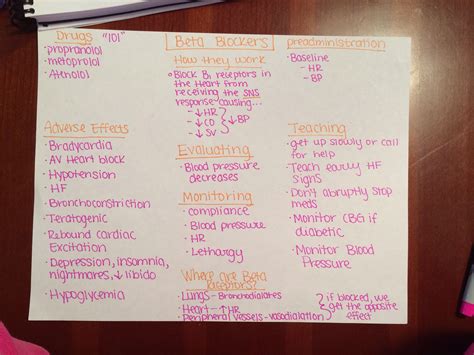 Drugs "101"
• propranolol
• metoprolol
• Atenolol
Adverse Effects
• Bradycardia
• AV Heart block
• Hypotension
• HF
• Bronchoconstriction
• Teratogenic
• Rebound Cardiac
Excitation
• Depression, insomnia,
nightmares, ↓ libido
• Hypoglycemia
Beta Blockers
How they work
• Block B1 receptors in
the Heart from
receiving the SNS
response causing...
- ↓ HR
- ↓ CO
- ↓ SV
↓ BP
Evaluating
• Blood pressure
decreases
Monitoring
• compliance
• Blood pressure
• HR
• Lethargy
Where are Beta
Receptors?
• Lungs - Bronchodialates
• Heart - ↑ HR
• Peripheral vessels - vasodialation
if blocked, we
get the opposite
effect
preadministration
• Baseline
- HR
- BP
Teaching
• get up slowly or call
for help
• Teach early HF
signs
• Don't abruptly stop
meds
• Monitor CBG if
diabetic
• Monitor Blood
Pressure